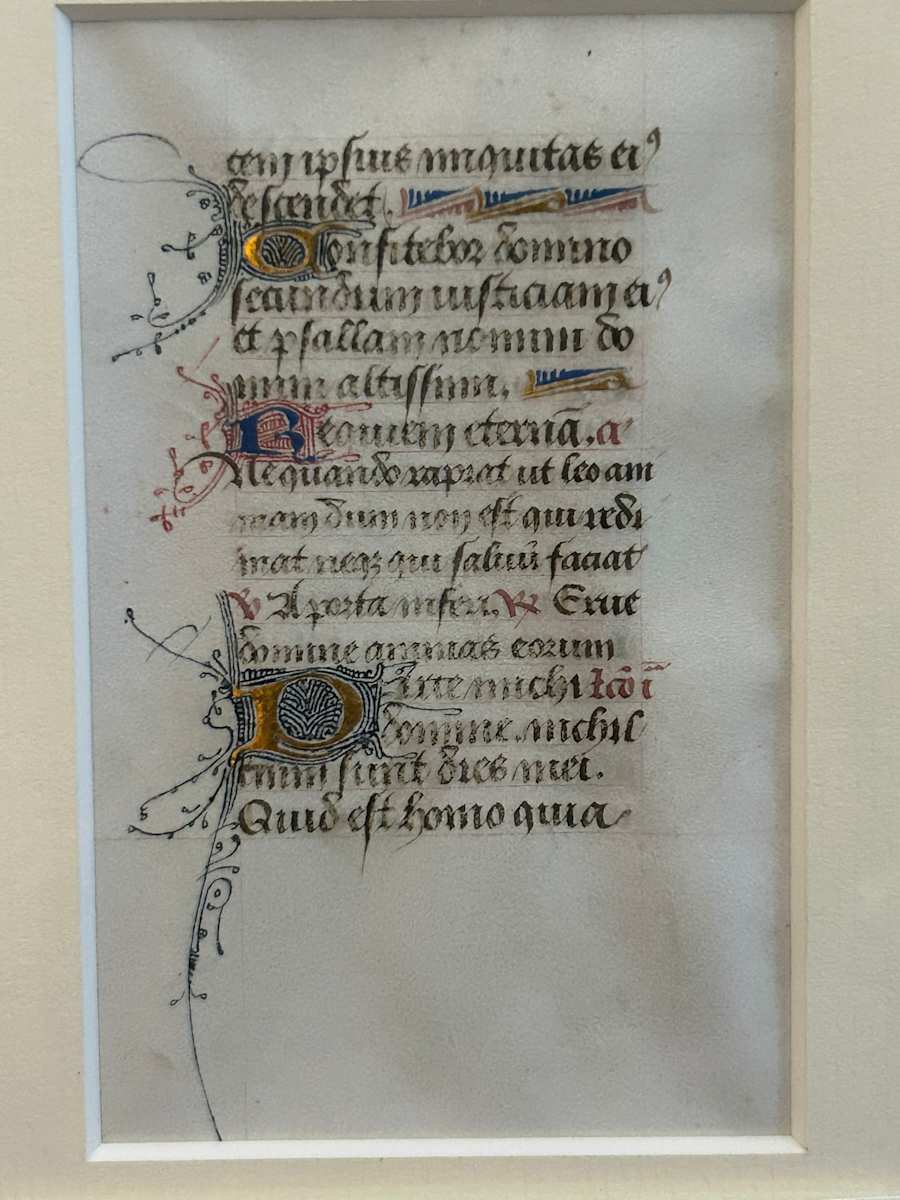 cem ipsius iniquitas ei⁹
descendet.
Confitebor domino
secundum iusticiam ei⁹
et psallam nomini do
mini altissimi.
Requiem eternā. a
Ne quando rapiat ut leo am
mam dum non est qui redi
mat neqꝫ qui saluū faciat
V A porta inferi. R Erue
domine animas eorum
Parce michi lcō i
domine. nichil
enim sunt dies mei.
Quid est homo quia